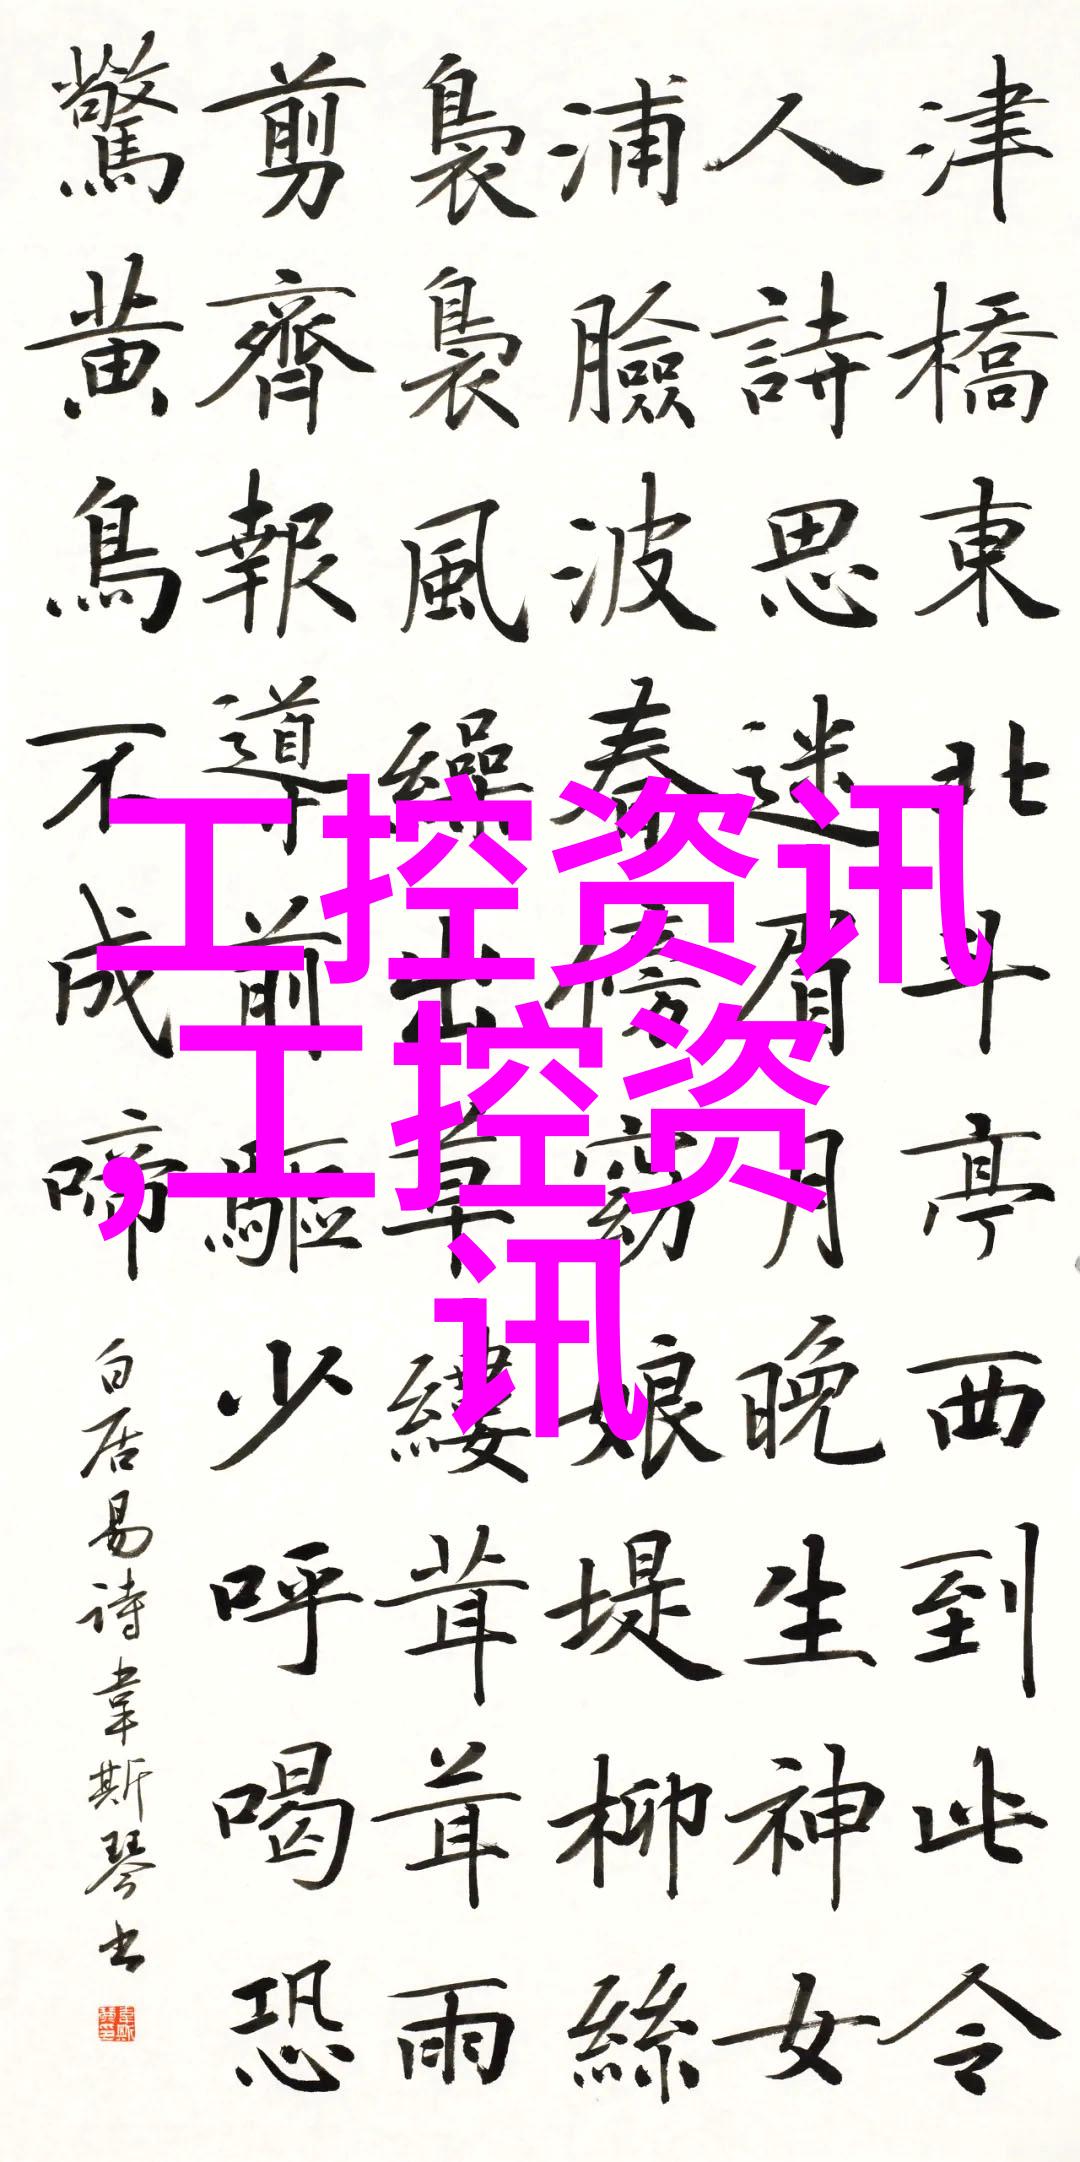 津橋東北斗亭西到此令
人詩思迷眉月晚生神女
浦臉波春傍窈娘堤柳絲
裊裊風繰出草縷茸茸雨
剪齊報導前驅少呼喝恐
驚黃鳥不成啼
白居易诗韋斯琴书
工控资讯
,工控资
讯